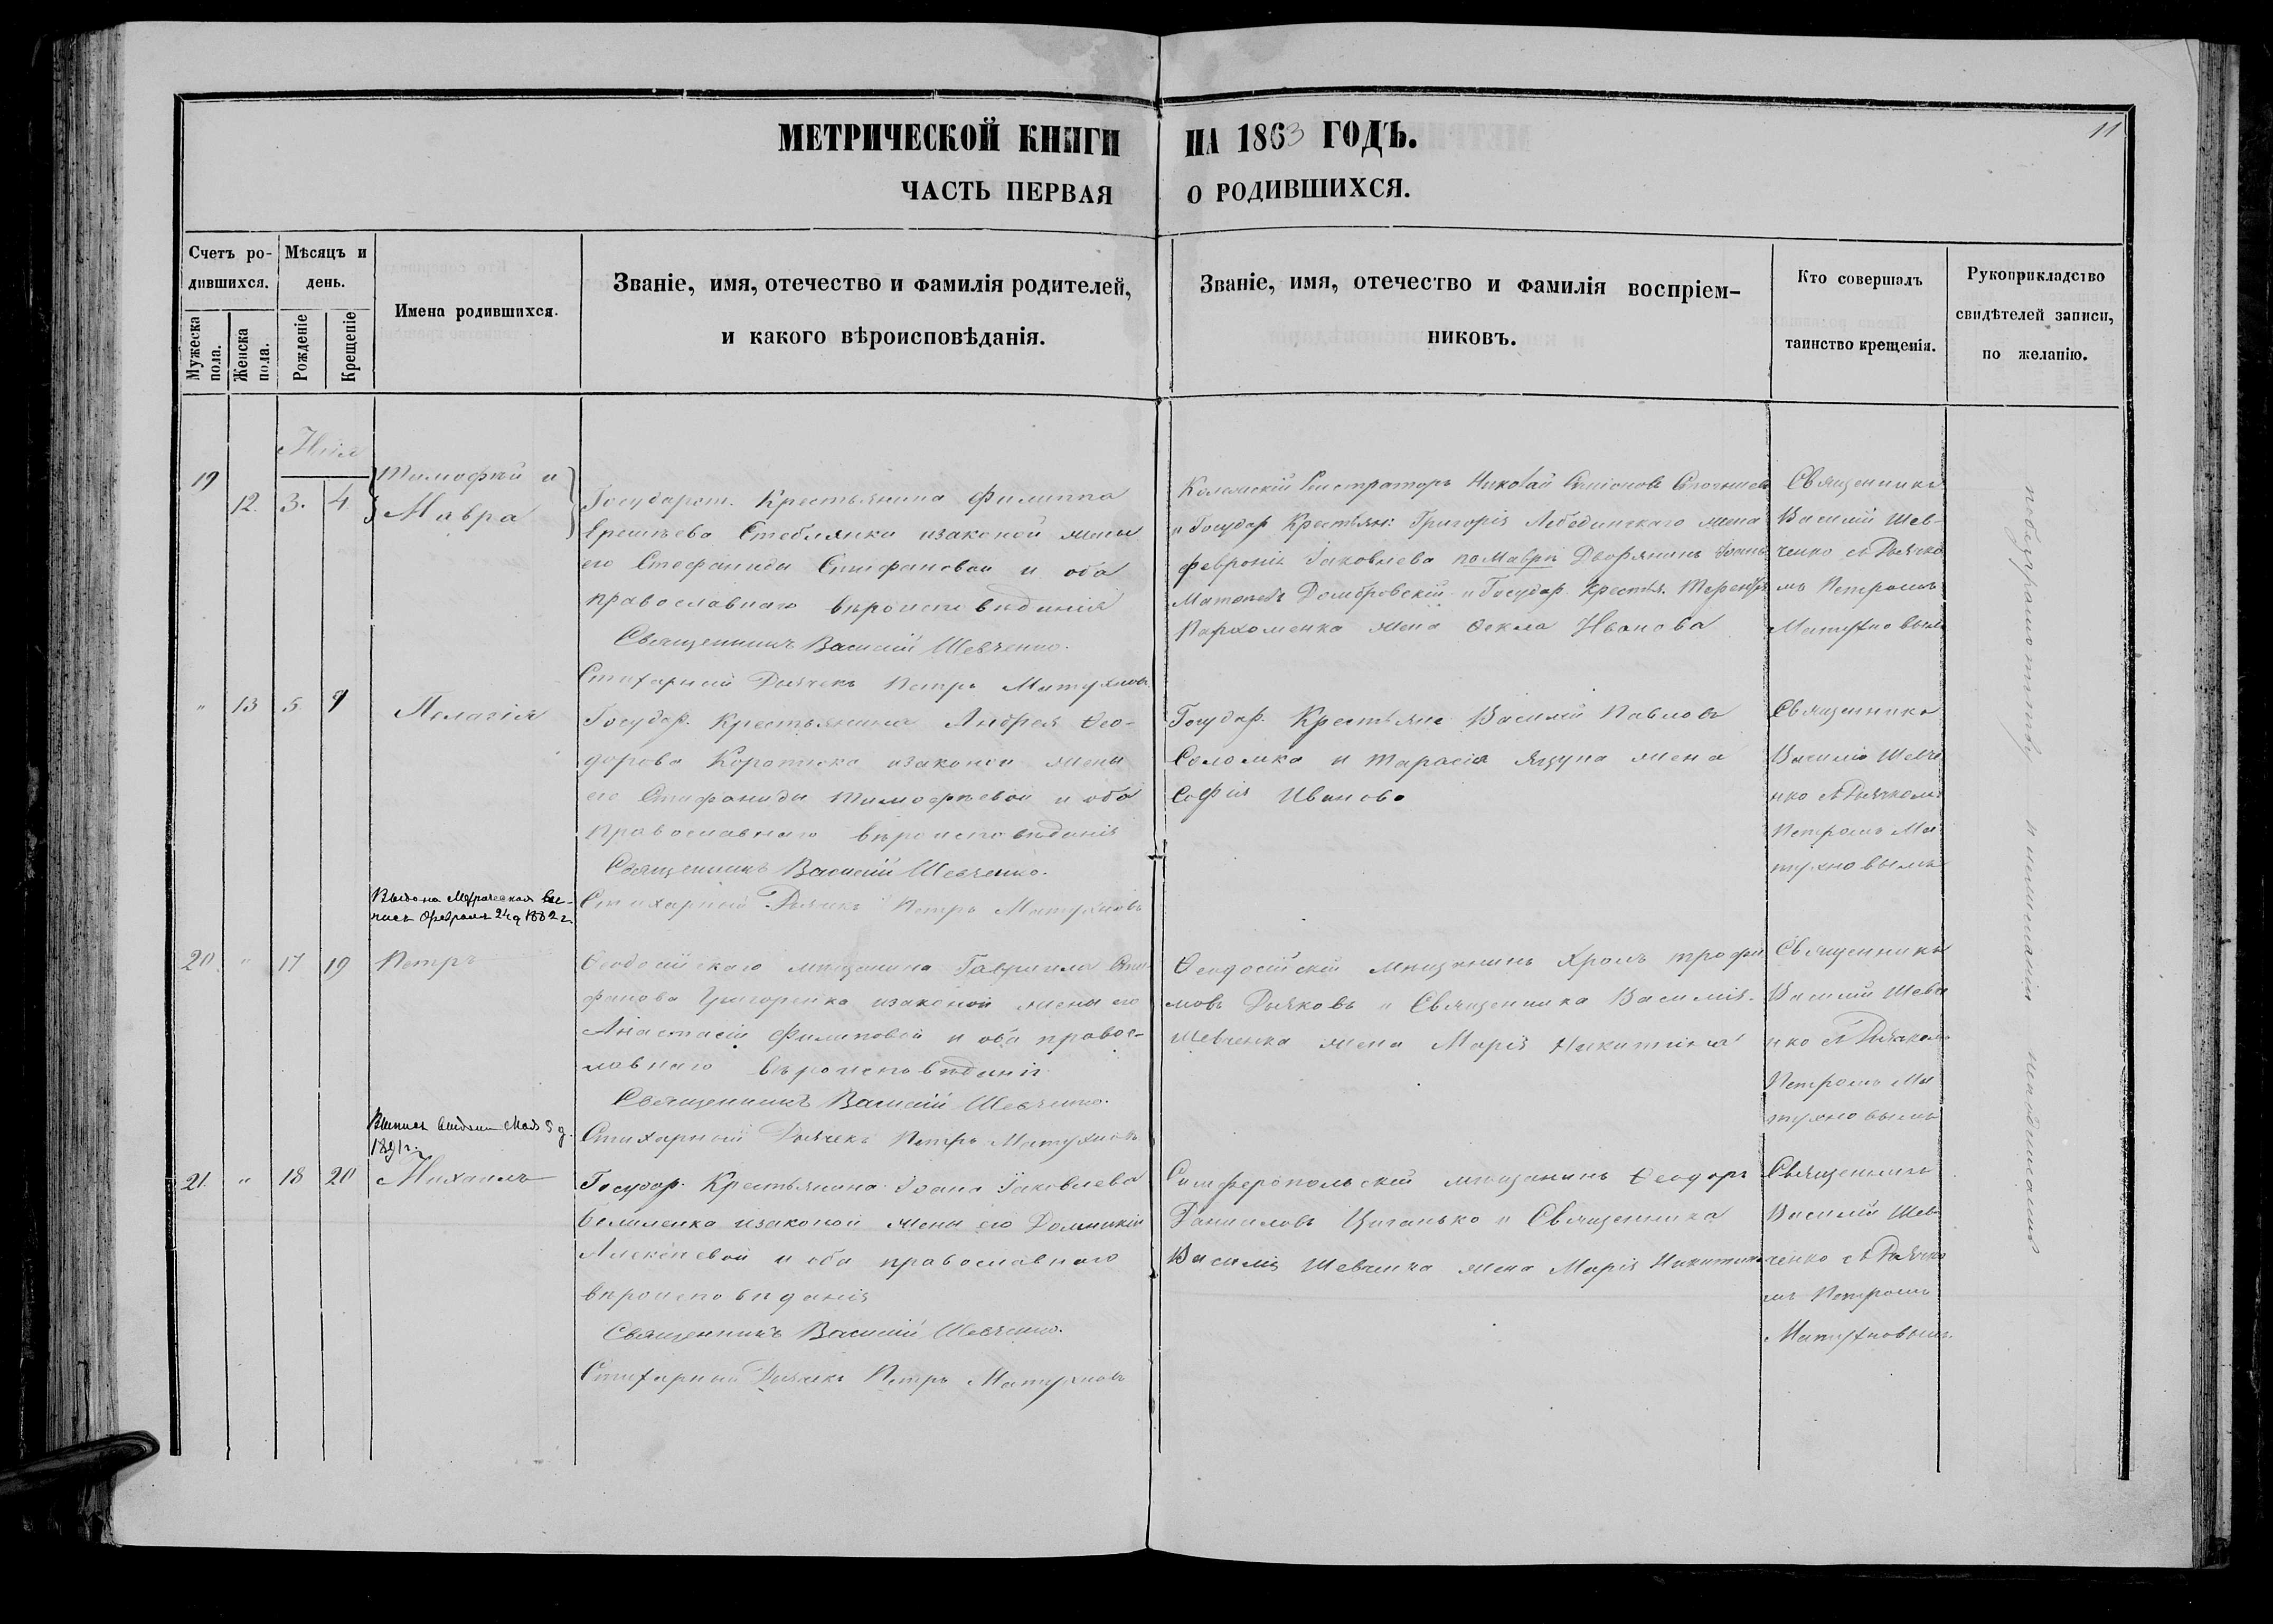 МЕТРИЧЕСКОЙ КНИГИ НА 1863 ГОДЪ.
11
ЧАСТЬ ПЕРВАЯ О РОДИВШИХСЯ.
Счетъ ро-
дившихся.
Мужеска
пола.
Женска
пола.
Мѣсяцъ и
день.
Рожденіе
Крещеніе
Имена родившихся.
Званіе, имя, отечество и фамилія родителей,
и какого вѣроисповѣданія.
Званіе, имя, отечество и фамилія воспріем-
никовъ.
Кто совершалъ
таинство крещенія.
Рукоприкладство
свидѣтелей записи,
по желанію.
19
12. 3. 4
Тимофѣй и
Мавра
Государст. Крестьянина Филиппа
Стеблянки изаконой жены
его Стефаниди Стефановой и оба
православнаго вѣроисповѣданія
Священникъ Василій Шевченко.
Стихарный Дьячекъ Петръ Матухновъ
Регистраторъ Николай
и Государ. Крестьян: Григорія Лебединскаго жена
Февронія Іаковлева по Маврѣ Дворянинъ Іоанъ
Домбровскій и Государ. Крестья.
Пархоменка жена Ѳекла Иванова
Священникъ
Василій Шев-
ченко съ Дьячко
мъ Петромъ
Матухновымъ
" 13 5 9
Пелагія
Государ. Крестьянина Андрея Ѳео-
дорова Коротика изаконой жены
его Стефаниди Тимофѣевой и оба
Православнаго вѣроисповѣданія
Священникъ Василій Шевченко.
Стихарный Дьячекъ Петръ Матухновъ
Государ. Крестьяне Василій Павловъ
Соломка и Тарасія Яцуна жена
Софія Иванова
Священникъ
Василій Шевче
нко съ Дьячкомъ
Петромъ Ма
тухновымъ
Выдана Метрическая вы-
пись Февраля 24 д 1882 г.
20 " 17 19
Петръ
Ѳеодосійскаго мѣщанина Гавріила Сте
фанова Григоренка изаконой жены его
Анастасіи Филиповой и оба правос-
лавнаго вѣроисповѣданія
Священникъ Василій Шевченко.
Стихарный Дьячекъ Петръ Матухновъ
Ѳеодосійскій мѣщанинъ Хромъ Трофи
мовъ Дьяковъ и Священника Василія
Шевченка жена Марія Никитина
Священникъ
Василій Шевче
нко съ Дьячкомъ
Петромъ Ма
тухновымъ
Выпись выдана Мая 3 д.
1891 г.
21. " 18 20
Михаилъ
Государ. Крестьянина Іоана Іаковлева
Емиленка изаконой жены его Домникіи
Алексѣевой и оба православнаго
вѣроисповѣданія
Священникъ Василій Шевченко.
Стихарный Дьячекъ Петръ Матухновъ
Симферопольскій мѣщанинъ Ѳеодоръ
Даниловъ Цыганько и Священника
Василія Шевченка жена Марія Никитина
Священникъ
Василій Шев-
ченко съ Дьячко
мъ Петромъ
Матухновымъ.